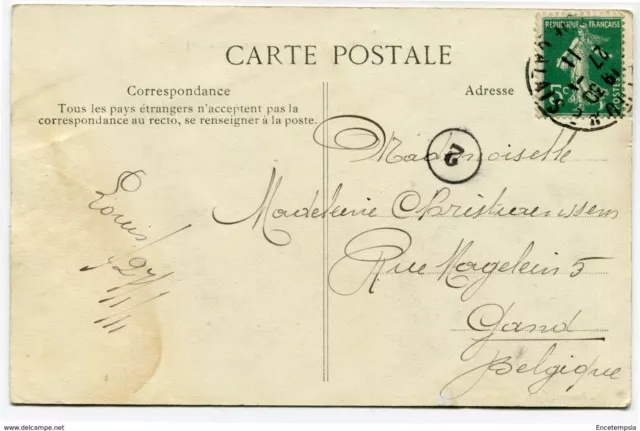 CARTE POSTALE
Correspondance
Tous les pays étrangers n'acceptent pas la
correspondance au recto, se renseigner à la poste.
Adresse
REPUBLIQUE FRANÇAISE
5c
POSTES
27
19 30
11
2
Mademoiselle
Madeleine Christiaenssens
Rue Magelein 5
Gand
Belgique
Louis
27/1/11
delcampe.net
Encetempsia